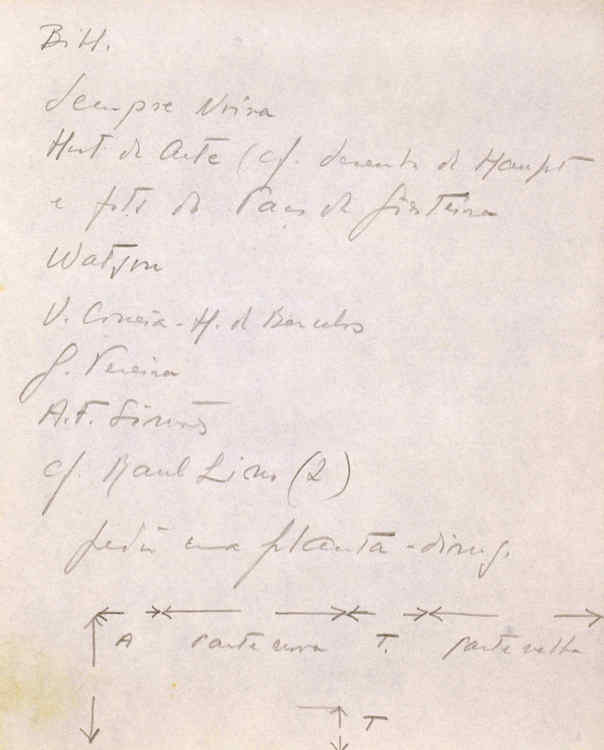 Bibl.
Sempre Noiva
Hist de Arte (cf. desenho de Haupt
e foto do Paço de Giesteira
Watson
V. Correia - H. de Barcelos
G. Pereira
A.F. Simões
cf. Raul Lino (2)
pedir uma planta -
A parte nova T. parte velha
T